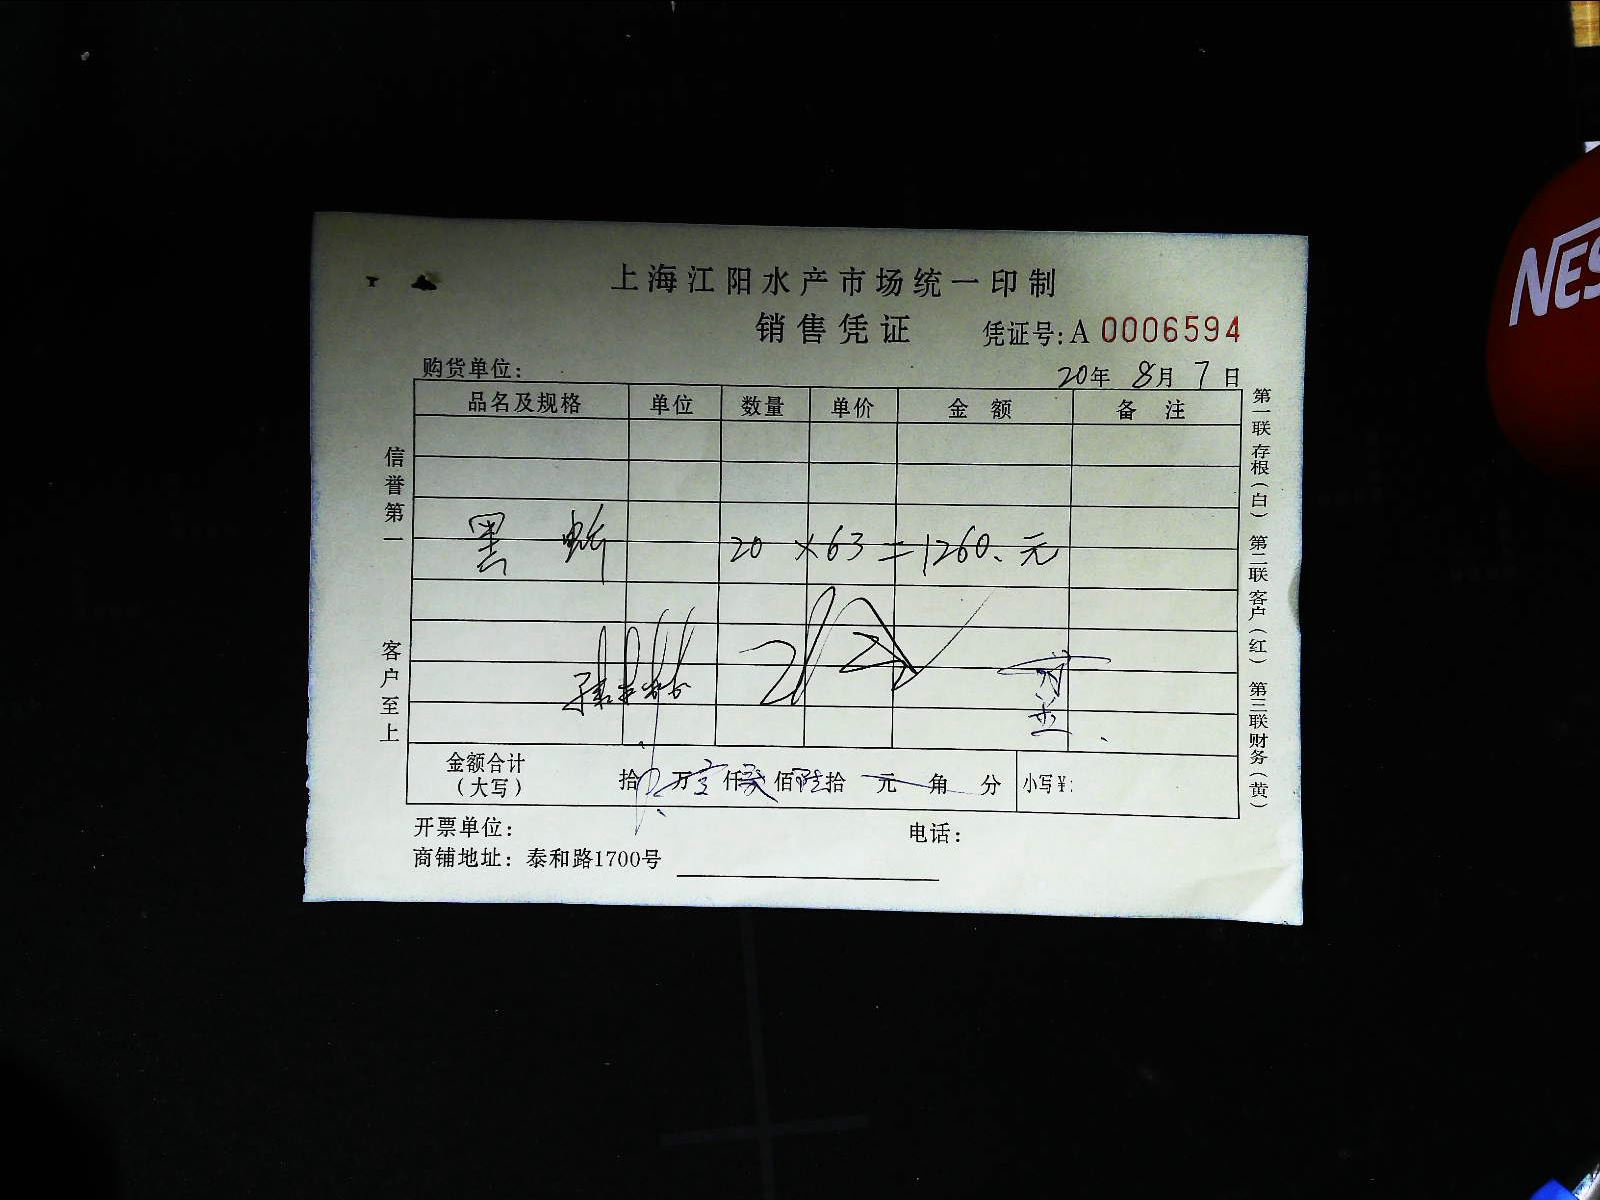 上海江阳水产市场统一印制
销售凭证
凭证号:A 0006594
购货单位:
20年 8月 7日
品名及规格 单位 数量 单价 金额 备注
黑 20 × 63 = 1260.元
金额合计(大写) 拾 万 仟 贰 佰 陆 拾 元 角 分 小写¥:
开票单位: 电话:
商铺地址:泰和路1700号
信誉第一
客户至上
第一联存根(白) 第二联客户(红) 第三联财务(黄)
NES